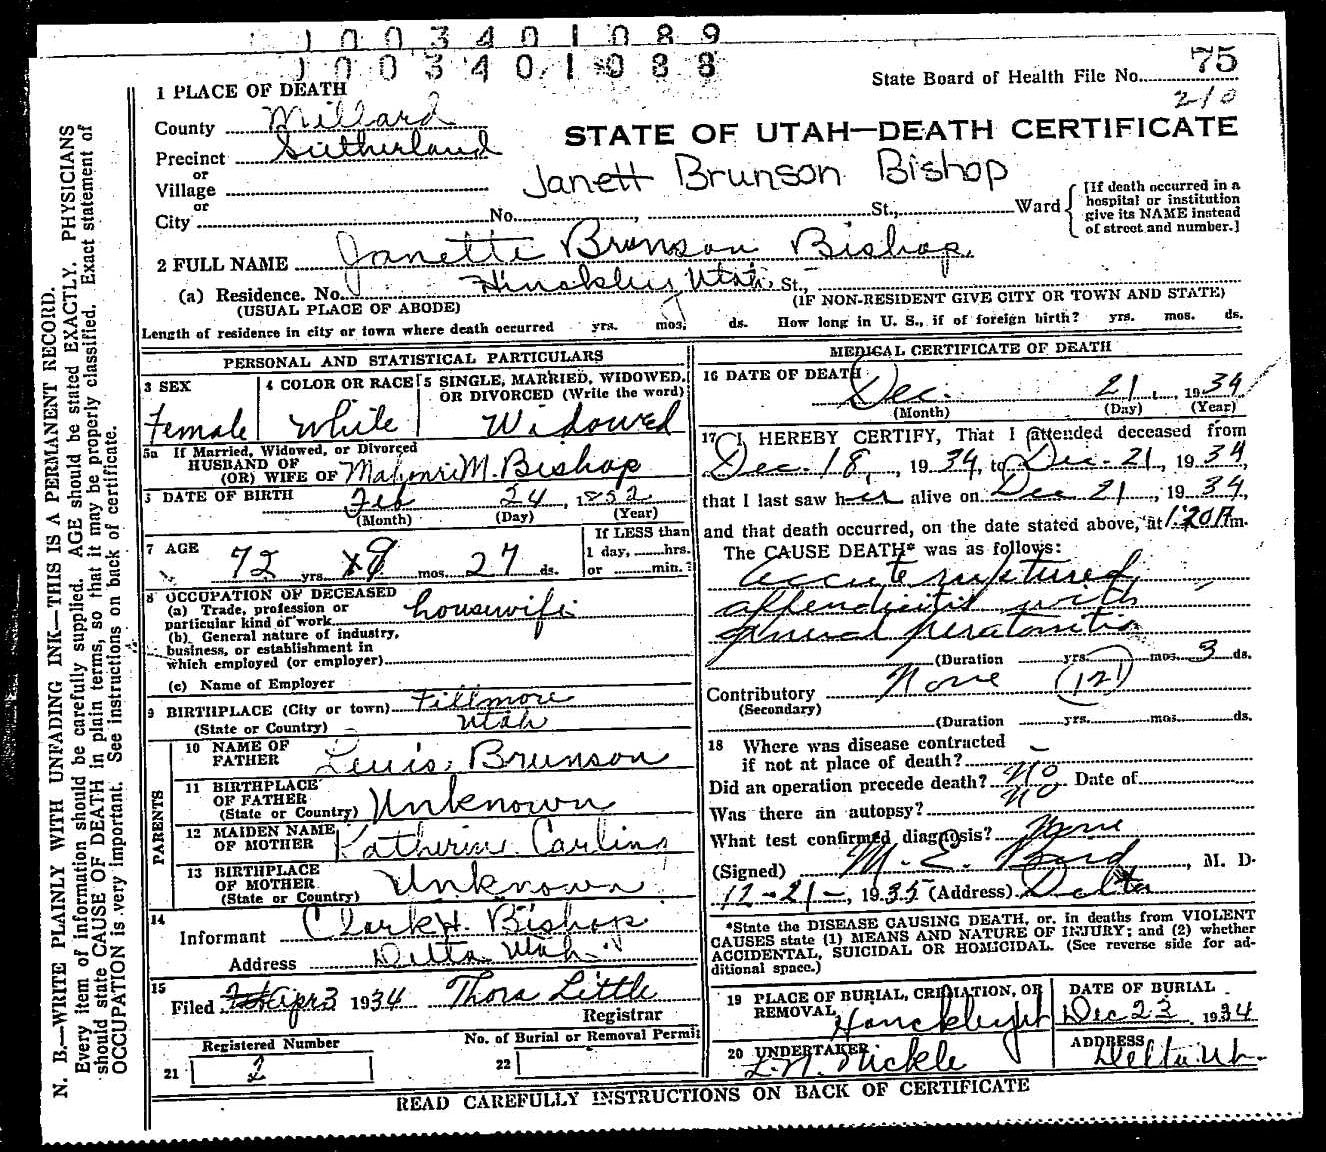 1 0 0 3 4 0 1 0 8 9
1 0 0 3 4 0 1 0 8 8
State Board of Health File No. 75
210
1 PLACE OF DEATH
County Millard
STATE OF UTAH—DEATH CERTIFICATE
Precinct Sutherland
or
Village
Janett Brunson Bishop
or
City No. , St., Ward
[If death occurred in a hospital or institution give its NAME instead of street and number.]
2 FULL NAME Janette Brunson Bishop.
(a) Residence. No. Hinckley Utah St.,
(USUAL PLACE OF ABODE) (IF NON-RESIDENT GIVE CITY OR TOWN AND STATE)
Length of residence in city or town where death occurred yrs. mos. ds. How long in U. S., if of foreign birth? yrs. mos. ds.
PERSONAL AND STATISTICAL PARTICULARS
3 SEX 4 COLOR OR RACE 5 SINGLE, MARRIED, WIDOWED, OR DIVORCED (Write the word)
Female White Widowed
5a If Married, Widowed, or Divorced
HUSBAND OF
(OR) WIFE OF Mahonri M. Bishop
DATE OF BIRTH Feb 24, 1852
(Month) (Day) (Year)
7 AGE 72 yrs. 9 mos. 27 ds.
If LESS than
1 day, hrs.
or min.?
8 OCCUPATION OF DECEASED
(a) Trade, profession or
particular kind of work housewife
(b) General nature of industry,
business, or establishment in
which employed (or employer)
(c) Name of Employer
9 BIRTHPLACE (City or town) Fillmore
(State or Country) Utah
PARENTS
10 NAME OF FATHER Lewis Brunson
11 BIRTHPLACE OF FATHER
(State or Country) Unknown
12 MAIDEN NAME OF MOTHER Katherine Carling
13 BIRTHPLACE OF MOTHER
(State or Country) Unknown
14
Informant Clark H. Bishop
Address Delta Utah
15
Filed Apr 3 1934 Thora Little
Registrar
Registered Number No. of Burial or Removal Permit
21 2 22
MEDICAL CERTIFICATE OF DEATH
16 DATE OF DEATH Dec. 21, 1934
(Month) (Day) (Year)
17 I HEREBY CERTIFY, That I attended deceased from
Dec. 18, 1934, to Dec - 21, 1934,
that I last saw her alive on Dec 21, 1934,
and that death occurred, on the date stated above, at 1:20 Am.
The CAUSE DEATH* was as follows:
accute ruptured
appendicitis with
general peratonitis
(Duration yrs. mos. 3 ds.
Contributory None (121)
(Secondary)
(Duration yrs. mos. ds.
18 Where was disease contracted
if not at place of death? –
Did an operation precede death? No Date of
Was there an autopsy? No
What test confirmed diagnosis? None
(Signed) M. E. Bird, M. D.
12-21-, 1935 (Address) Delta
*State the DISEASE CAUSING DEATH, or, in deaths from VIOLENT
CAUSES state (1) MEANS AND NATURE OF INJURY; and (2) whether
ACCIDENTAL, SUICIDAL OR HOMICIDAL. (See reverse side for ad-
ditional space.)
19 PLACE OF BURIAL, CREMATION, OR REMOVAL DATE OF BURIAL
Dec 23 1934
20 UNDERTAKER ADDRESS
Delta Ut.
READ CAREFULLY INSTRUCTIONS ON BACK OF CERTIFICATE
N. B.—WRITE PLAINLY WITH UNFADING INK—THIS IS A PERMANENT RECORD.
Every item of information should be carefully supplied. AGE should be stated EXACTLY. PHYSICIANS
should state CAUSE OF DEATH in plain terms, so that it may be properly classified. Exact statement of
OCCUPATION is very important. See instructions on back of certificate.